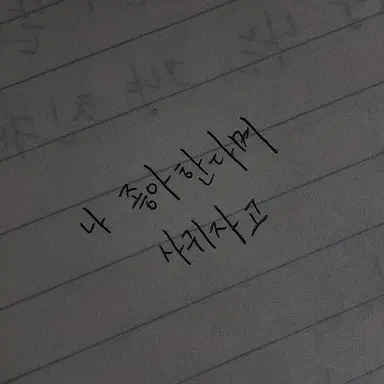 나 좋아한다며
사귀자고